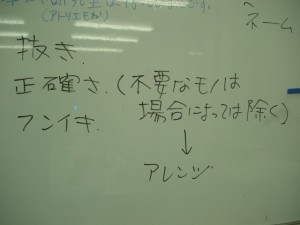 (アトリエモリ)
ネーム
抜き.
正確さ.(不要なモノは
場合によっては除く)
フンイキ.
↓
アレンジ